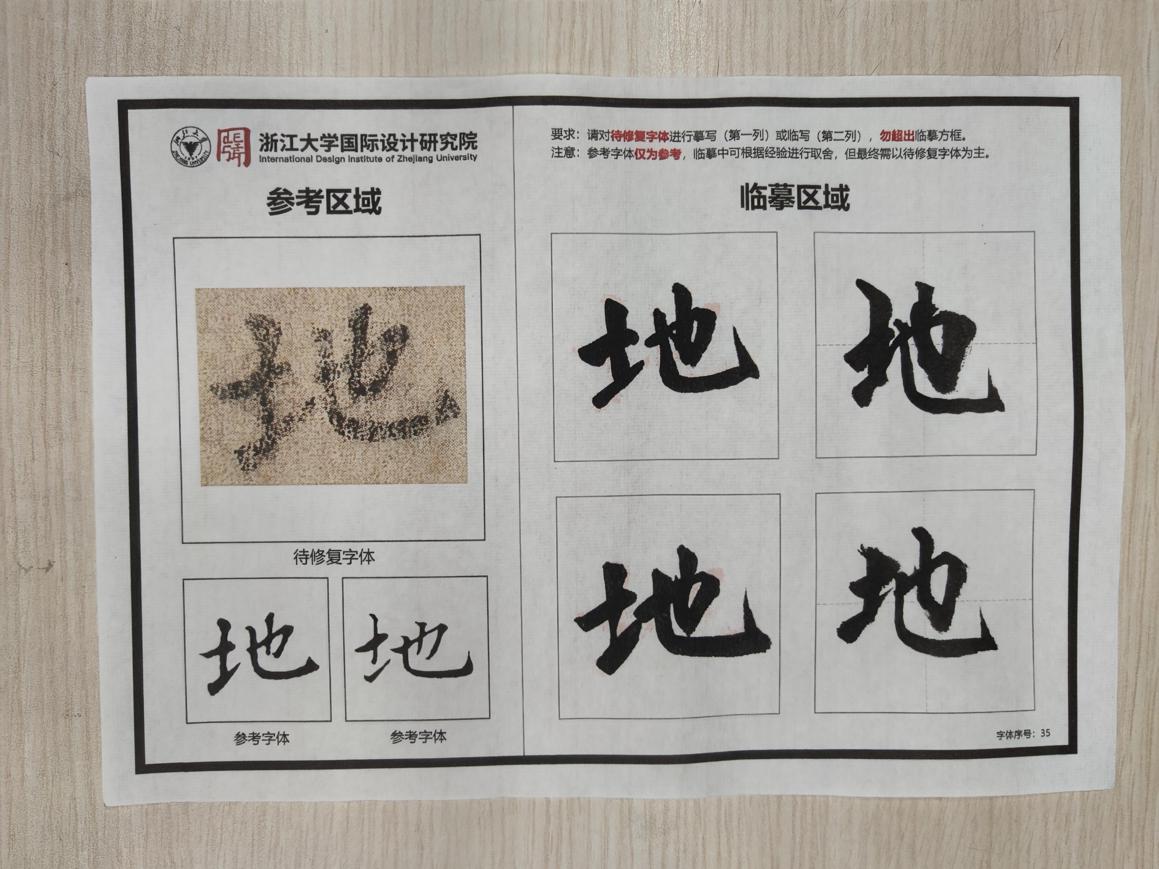 浙江大学国际设计研究院
International Design Institute of Zhejiang University
参考区域
地
待修复字体
地
地
参考字体
参考字体
要求：请对待修复字体进行摹写（第一列）或临写（第二列），勿超出临摹方框。
注意：参考字体仅为参考，临摹中可根据经验进行取舍，但最终需以待修复字体为主。
临摹区域
地
地
地
地
字体序号：35